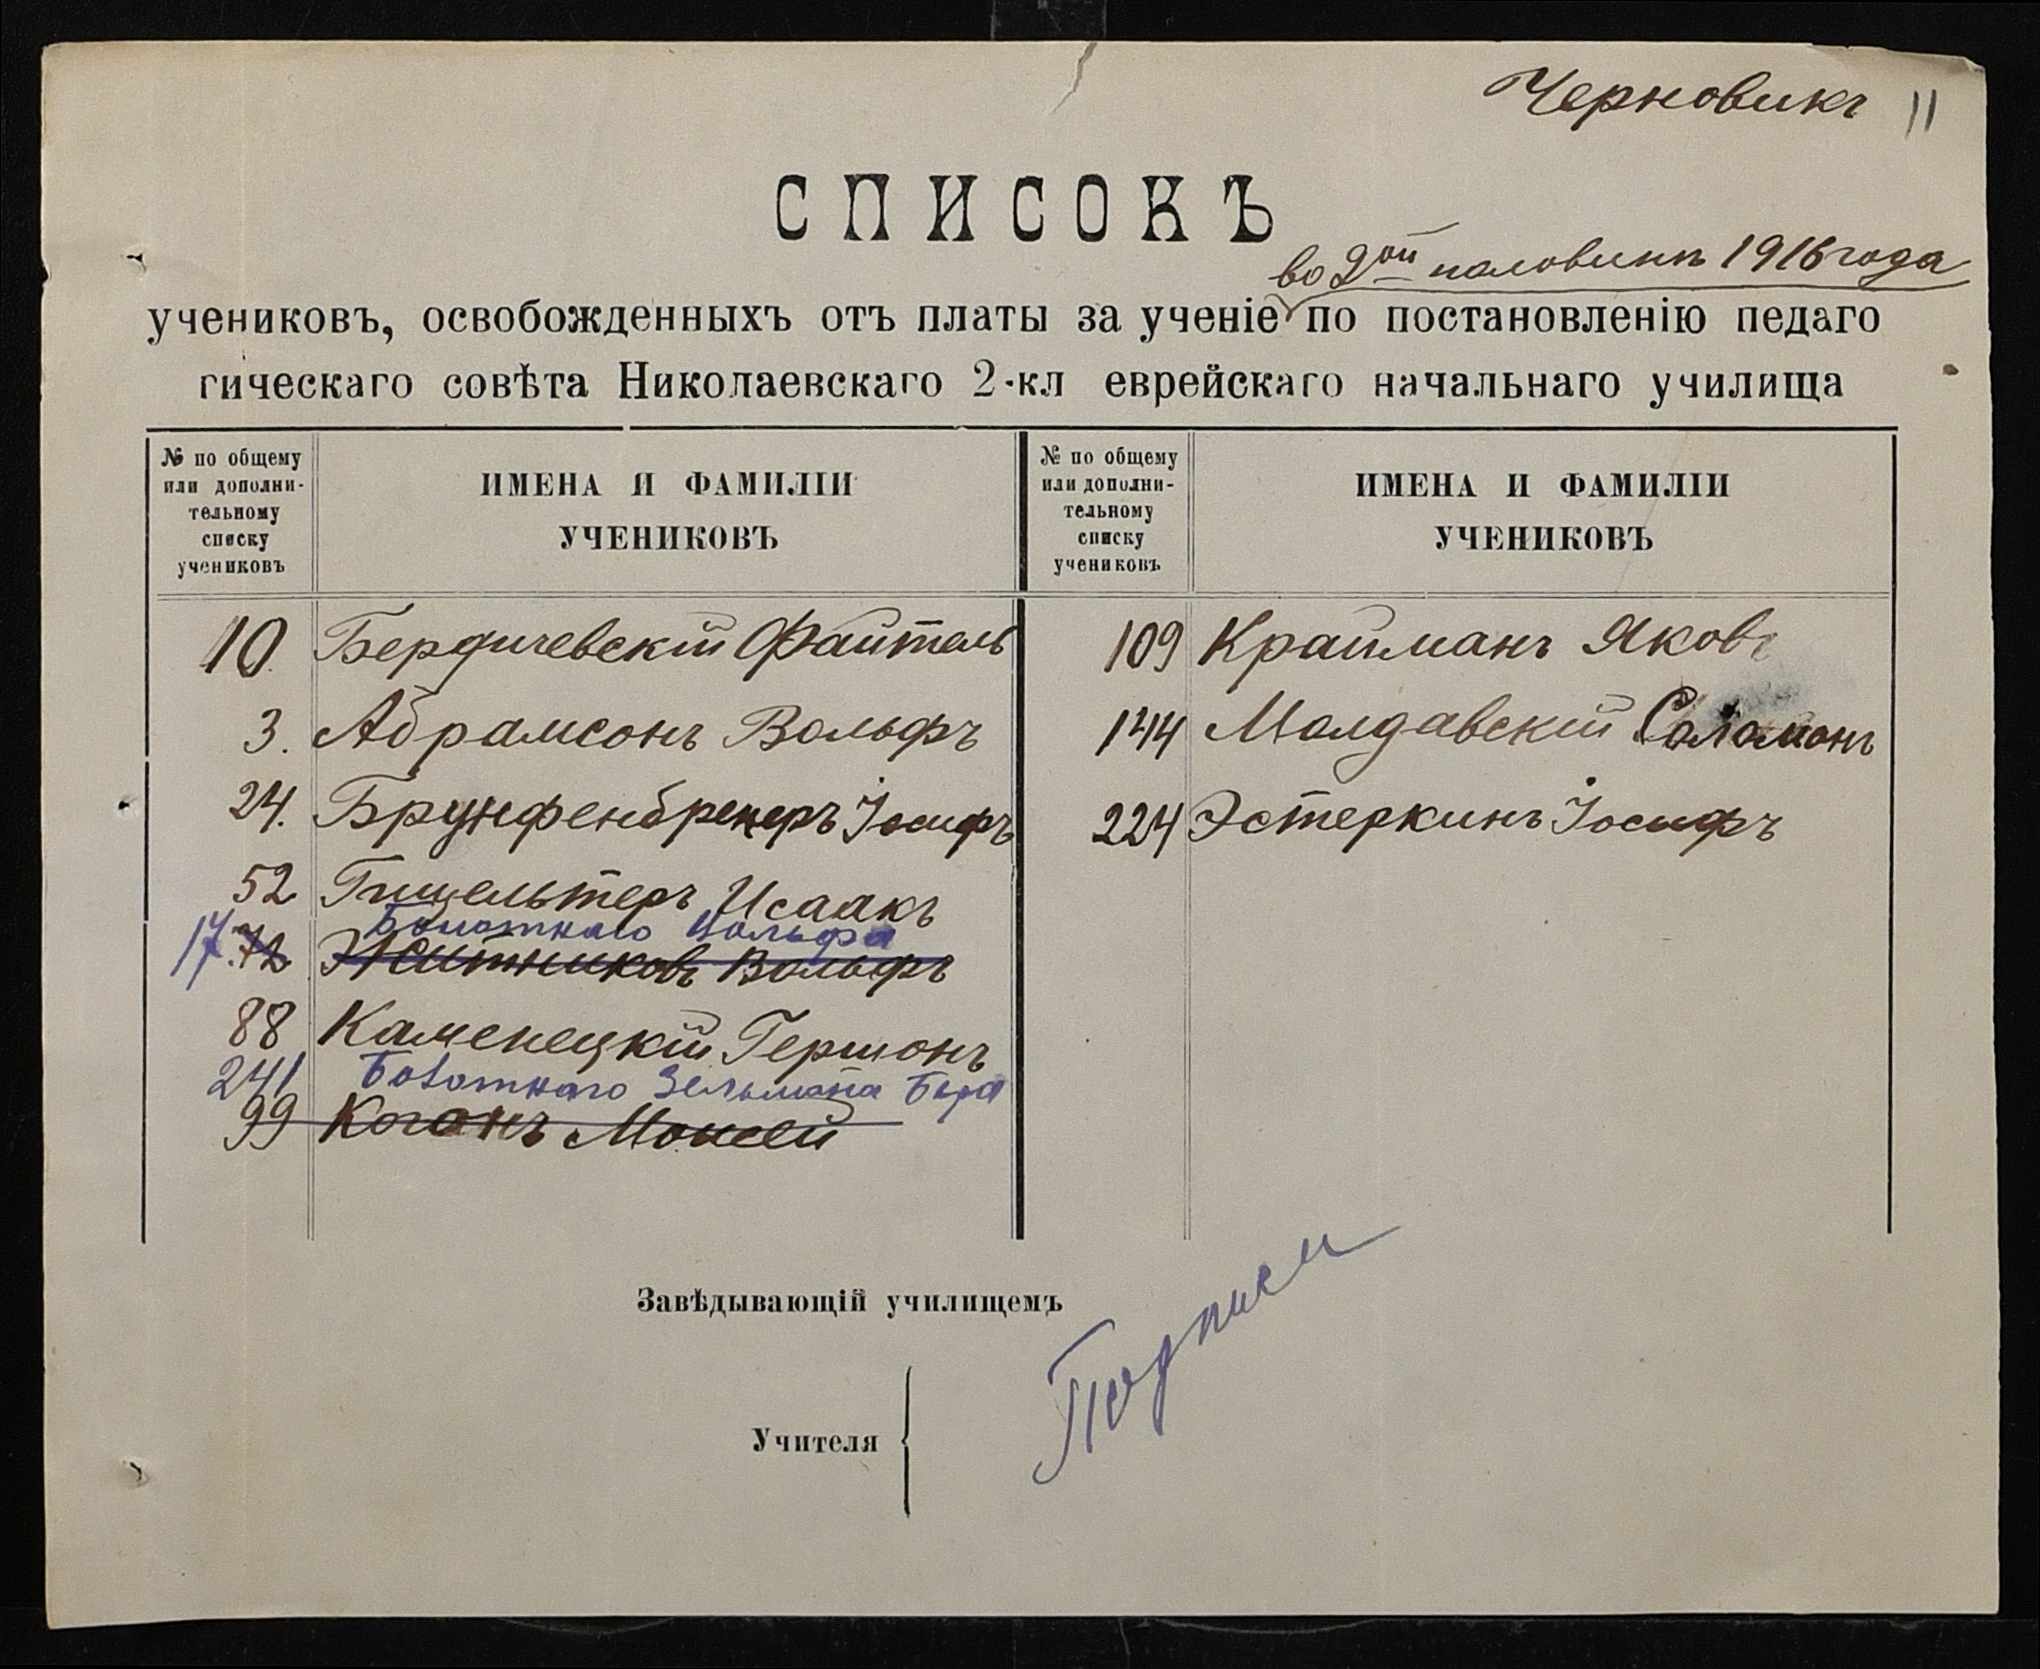 Черновикъ 11
СПИСОКЪ
во 2ой половинѣ 1916 года
учениковъ, освобожденныхъ отъ платы за ученіе по постановленію педаго
гическаго совѣта Николаевскаго 2-кл еврейскаго начальнаго училища
№ по общему или дополни- тельному списку учениковъ
ИМЕНА И ФАМИЛІИ УЧЕНИКОВЪ
№ по общему или дополни- тельному списку учениковъ
ИМЕНА И ФАМИЛІИ УЧЕНИКОВЪ
10. Бердичевскій Файтель
3. Абрамсонъ Вольфъ
24. Брунфенбренеръ Іосифъ
52 Гишельтеръ Исаакъ
17. Болотнаго Вольфа
72 Житниковъ Вольфъ
88 Каменецкій Гершонъ
241 Болотнаго Зельмана Бера
99 Коганъ Моисей
109 Крайманъ Яковъ
144 Молдавскій Соломонъ
224 Эстеркинъ Іосифъ
Завѣдывающій училищемъ
Учителя
Подписи